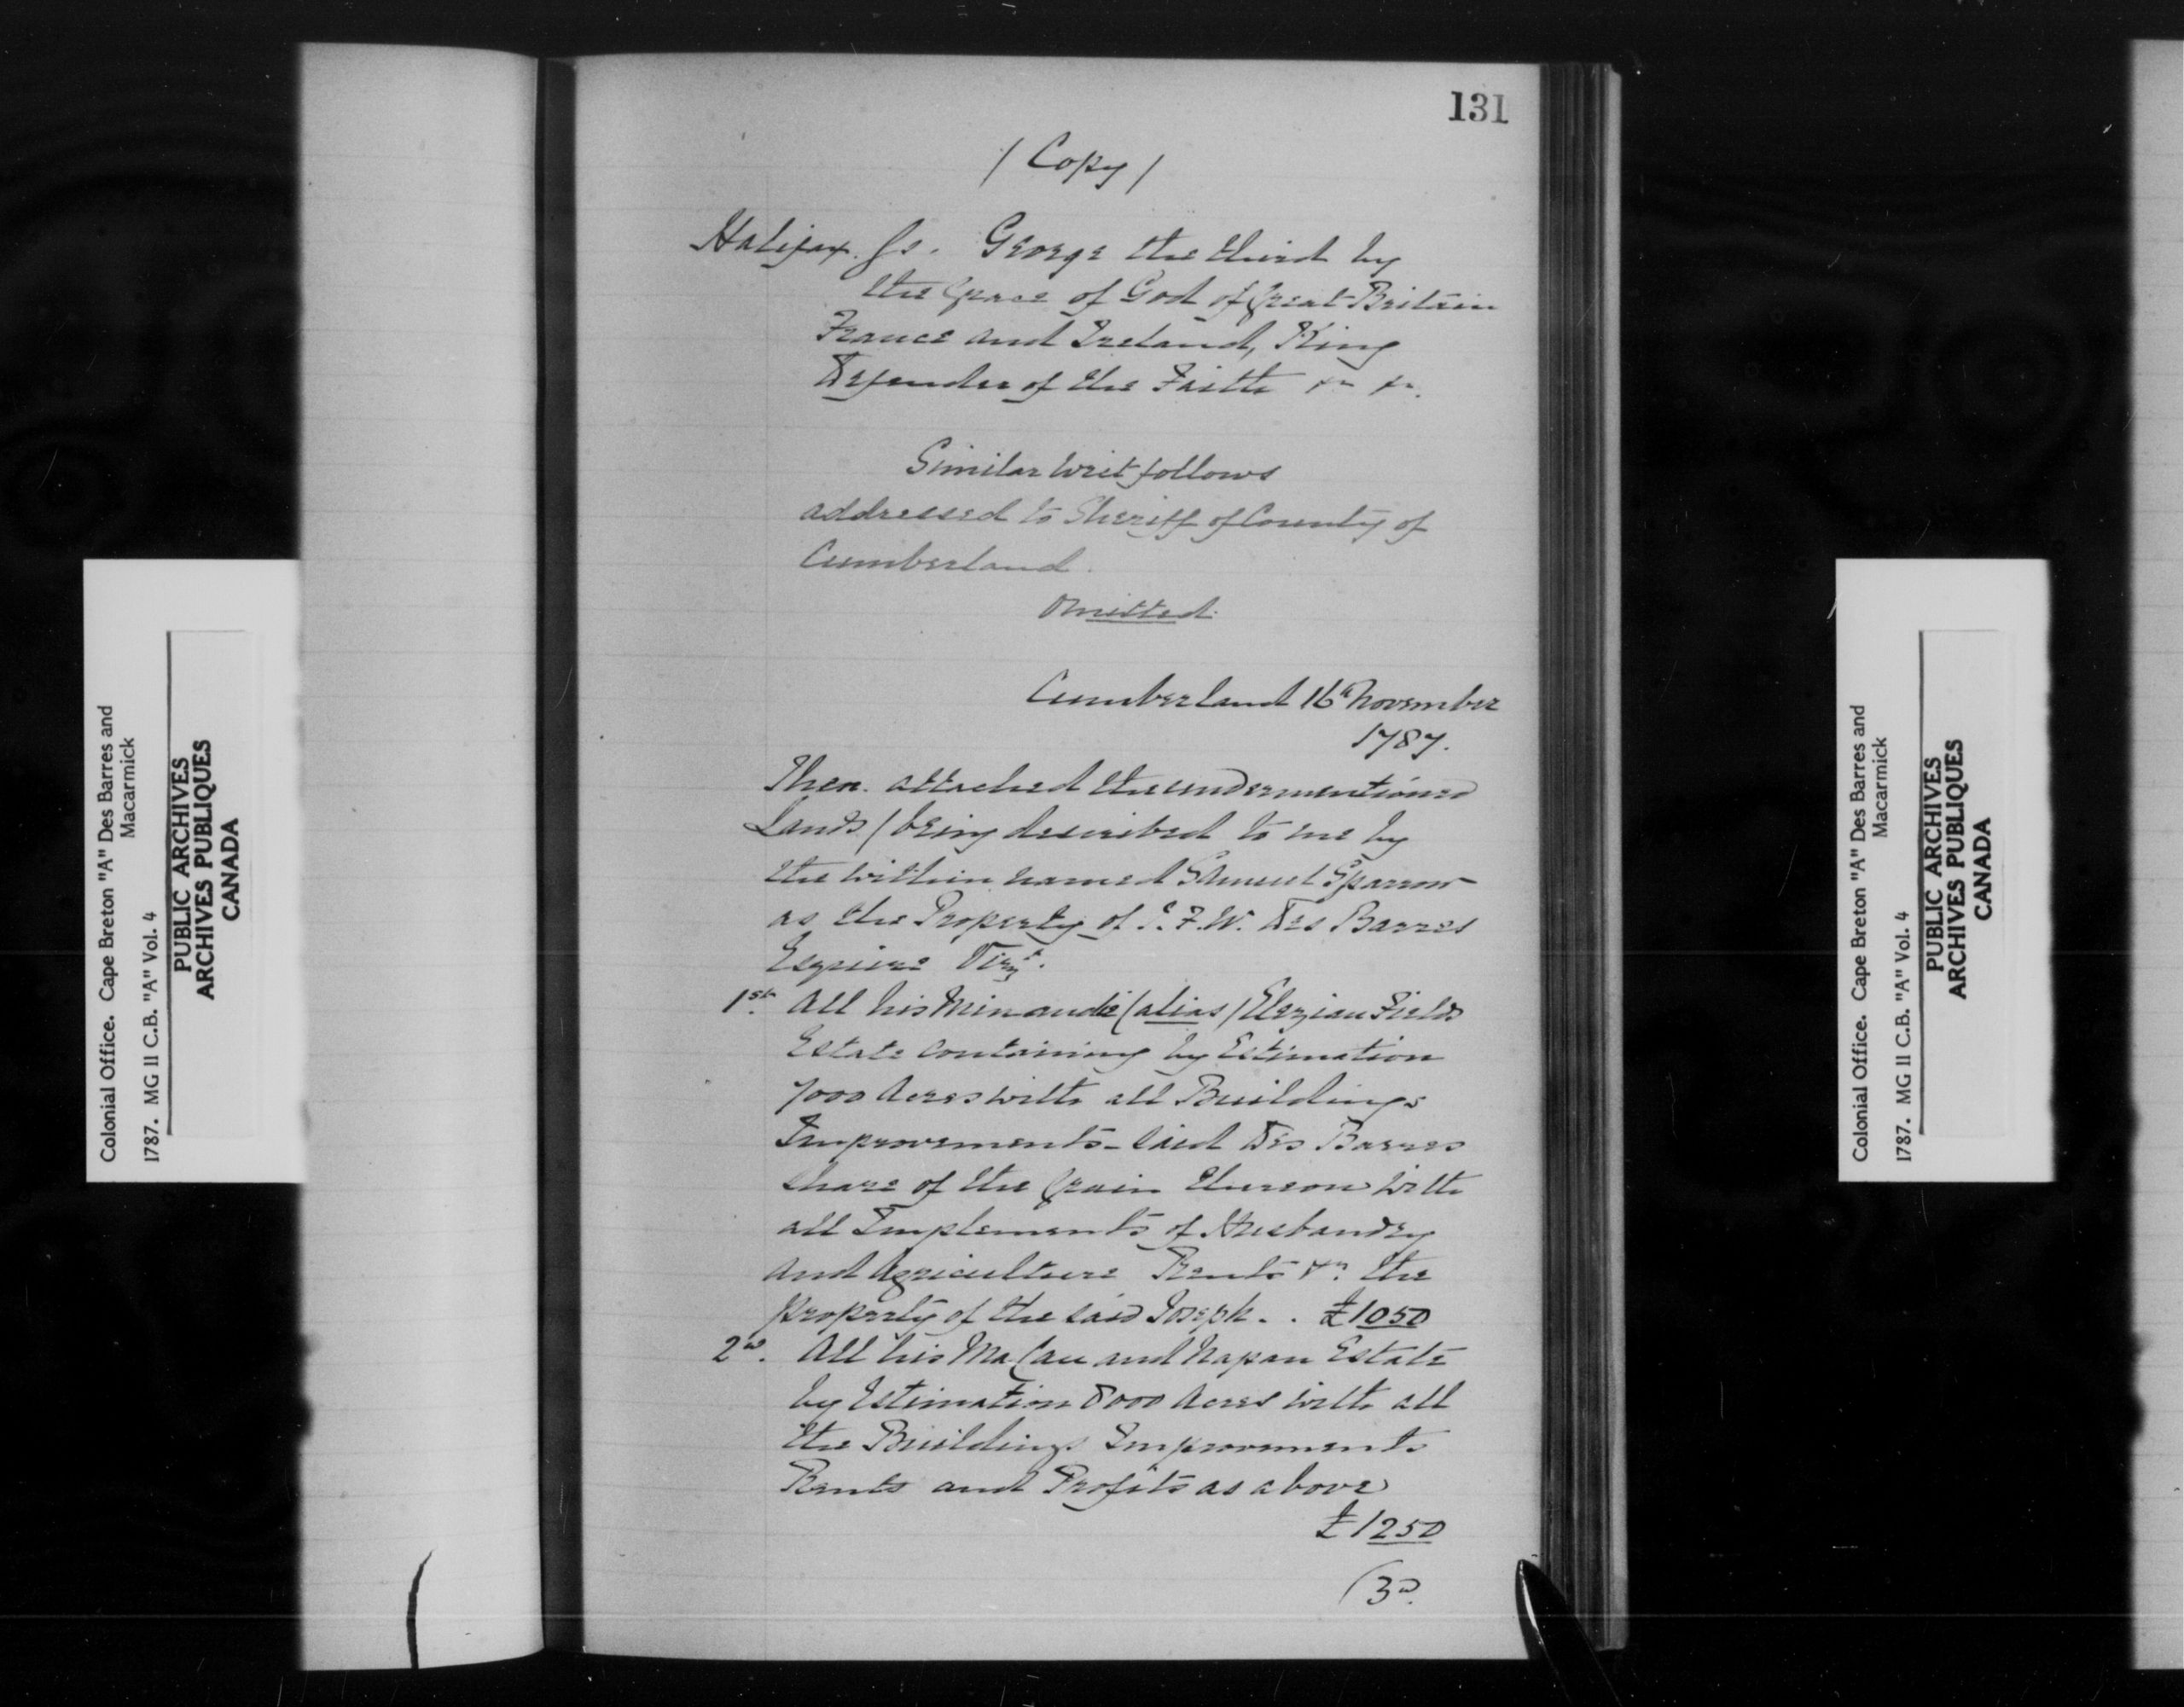 131
/ Copy /
Halifax. ss. George the third by
the Grace of God of Great Britain
France and Ireland, King
Defender of the Faith &c &c.
Similar writ follows
addressed to Sheriff of County of
Cumberland.
Omitted.
Cumberland 16th November
1787.
Then attached the undermentioned
Lands / being described to me by
the within named Samuel Sparrow
as the Property of J. F. W. Des Barres
Esquire Vizt.
1st. All his Minaudie (alias) Elezian Fields
Estate containing by Estimation
7000 Acres with all Buildings
Improvements - said Des Barres
share of the Grain thereon with
all Implements of Husbandry
and Agriculture Rents &c. the
property of the said Joseph . . £1050
2d. All his Ma Can and Napan Estate
by Estimation 8000 Acres with all
the Buildings Improvements
Rents and Profits as above
£1250
(3d.
Colonial Office. Cape Breton "A" Des Barres and
Macarmick
1787. MG II C.B. "A" Vol. 4
PUBLIC ARCHIVES
ARCHIVES PUBLIQUES
CANADA
Colonial Office. Cape Breton "A" Des Barres and
Macarmick
1787. MG II C.B. "A" Vol. 4
PUBLIC ARCHIVES
ARCHIVES PUBLIQUES
CANADA